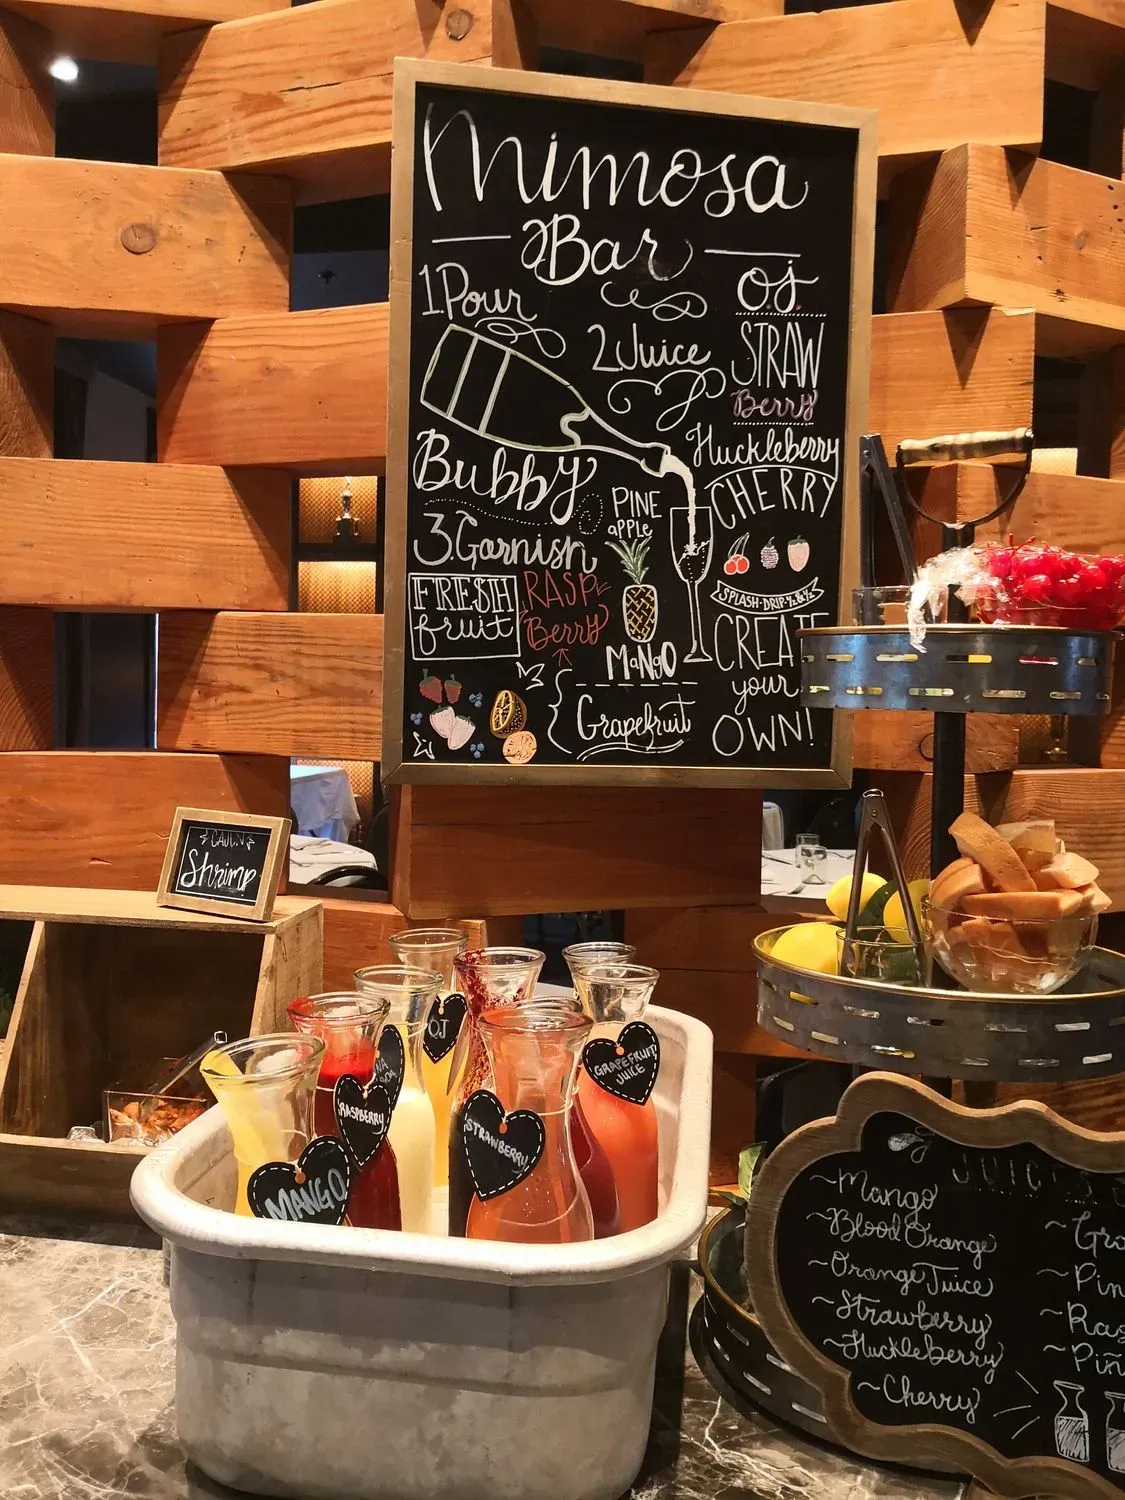 Mimosa
Bar
1. Pour
Bubby
2. Juice
O.J
STRAW
Berry
Huckleberry
CHERRY
PINE
apple
3. Garnish
FRESH
fruit
RASP
Berry
MaNgO
Grapefruit
SPLASH·DRIP·½&½
CREATE
your
OWN!
CAJUN
Shrimp
OJ
GRAPEFRUIT
JUICE
RASPBERRY
STRAWBERRY
MANGO
JUICES
~Mango
~Blood Orange
~Orange Juice
~Strawberry
~Huckleberry
~Cherry
~Gra
~Pin
~Ras
~Piñ